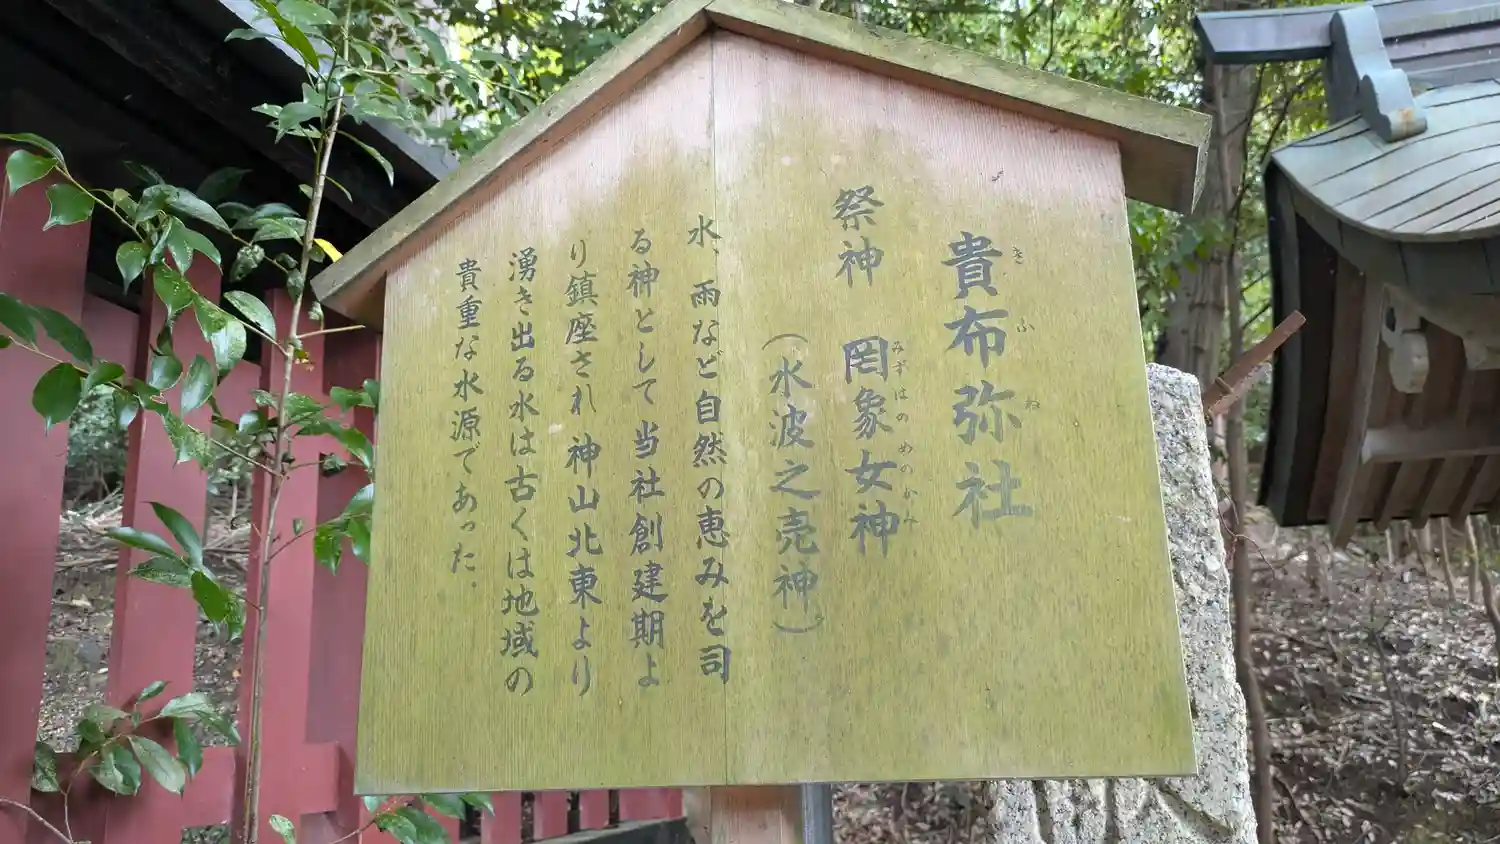 貴布弥社
きふね
祭神 罔象女神
みずはのめのかみ
（水波之売神）
水、雨など自然の恵みを司
る神として当社創建期よ
り鎮座され神山北東より
湧き出る水は古くは地域の
貴重な水源であった。